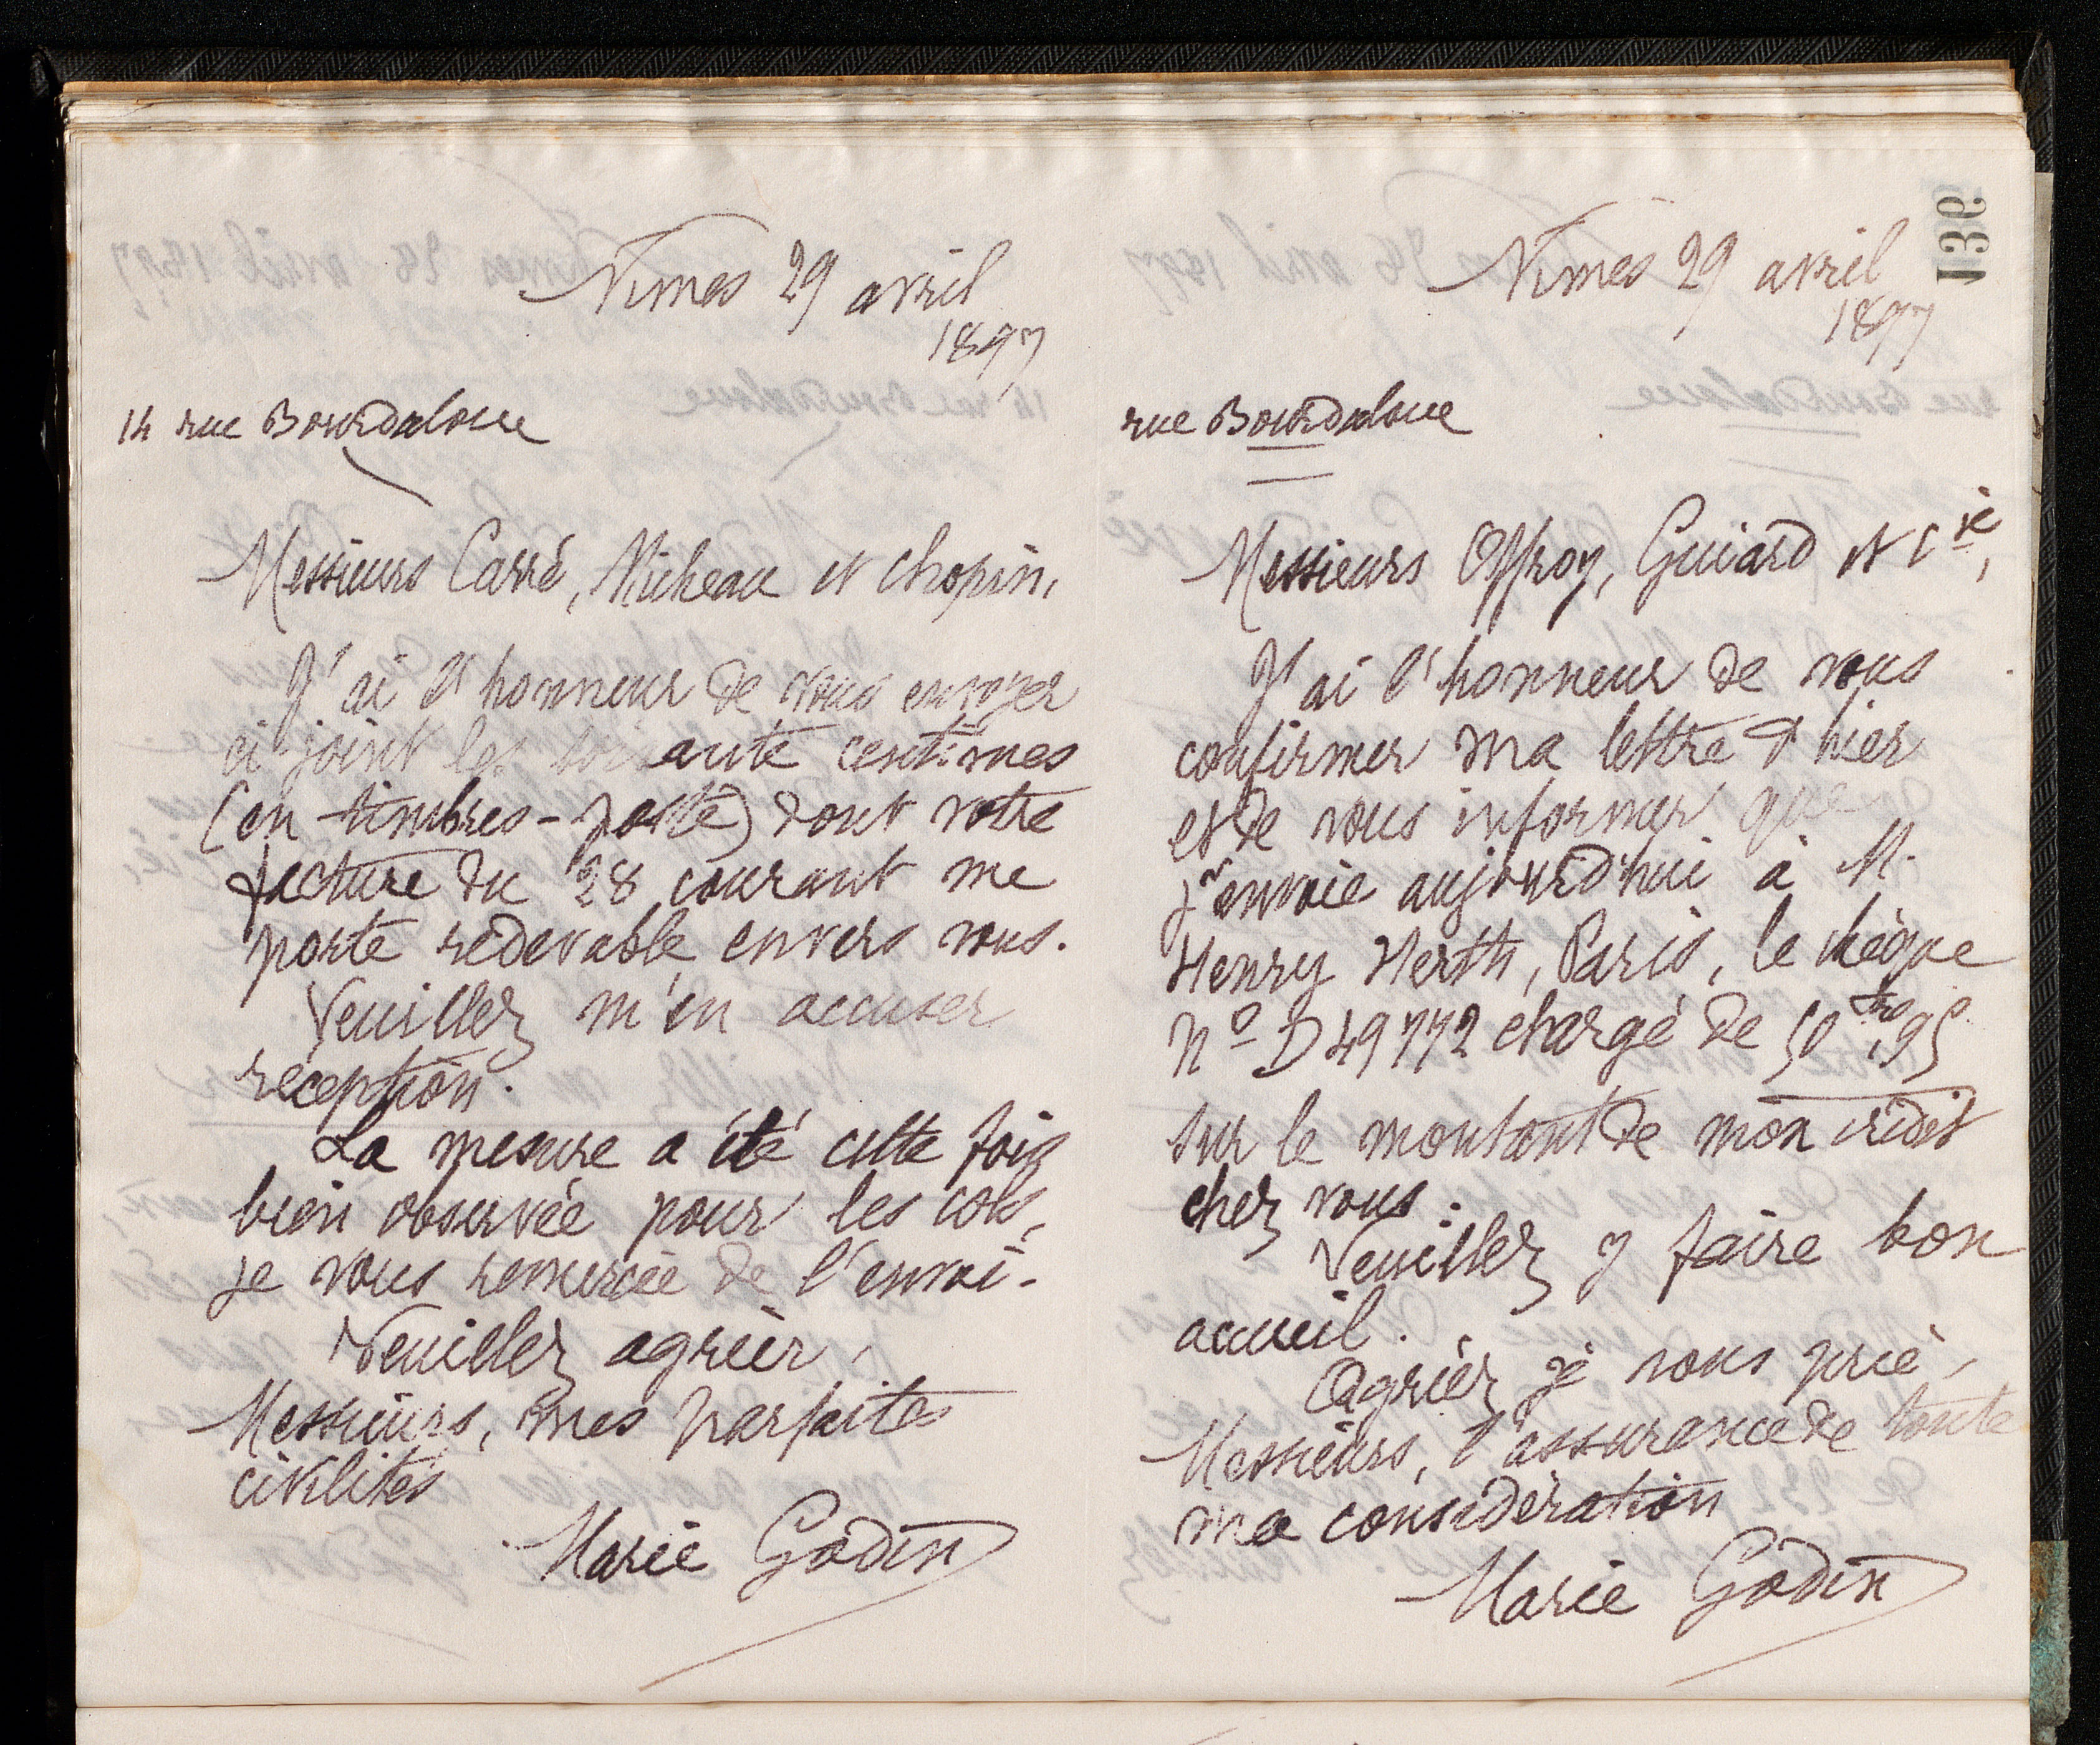 136
Nimes 29 avril
1897
14 rue Bourdaloue
Messieurs Carré, Micheau et Chopin,
J'ai l'honneur de vous envoyer
ci-joint les soixante centimes
(en timbres-poste) dont votre
facture du 28 courant me
porte redevable envers vous.
Veuillez m'en accuser
réception.
La mesure a été cette fois
bien observée pour les cols,
je vous remercie de l'envoi.
Veuillez agréer,
Messieurs, mes parfaites
civilités
Marie Godin
Nimes 29 avril
1897
rue Bourdaloue
Messieurs Offroy, Guiard et Cie,
J'ai l'honneur de vous
confirmer ma lettre d'hier
et de vous informer que
j'envoie aujourd'hui à M.
Henry Herth, Paris, le chèque
No D 49772 chargé de 50 frs,95
sur le montant de mon crédit
chez vous.
Veuillez y faire bon
accueil.
Agréez je vous prie,
Messieurs, l'assurance de toute
ma considération
Marie Godin